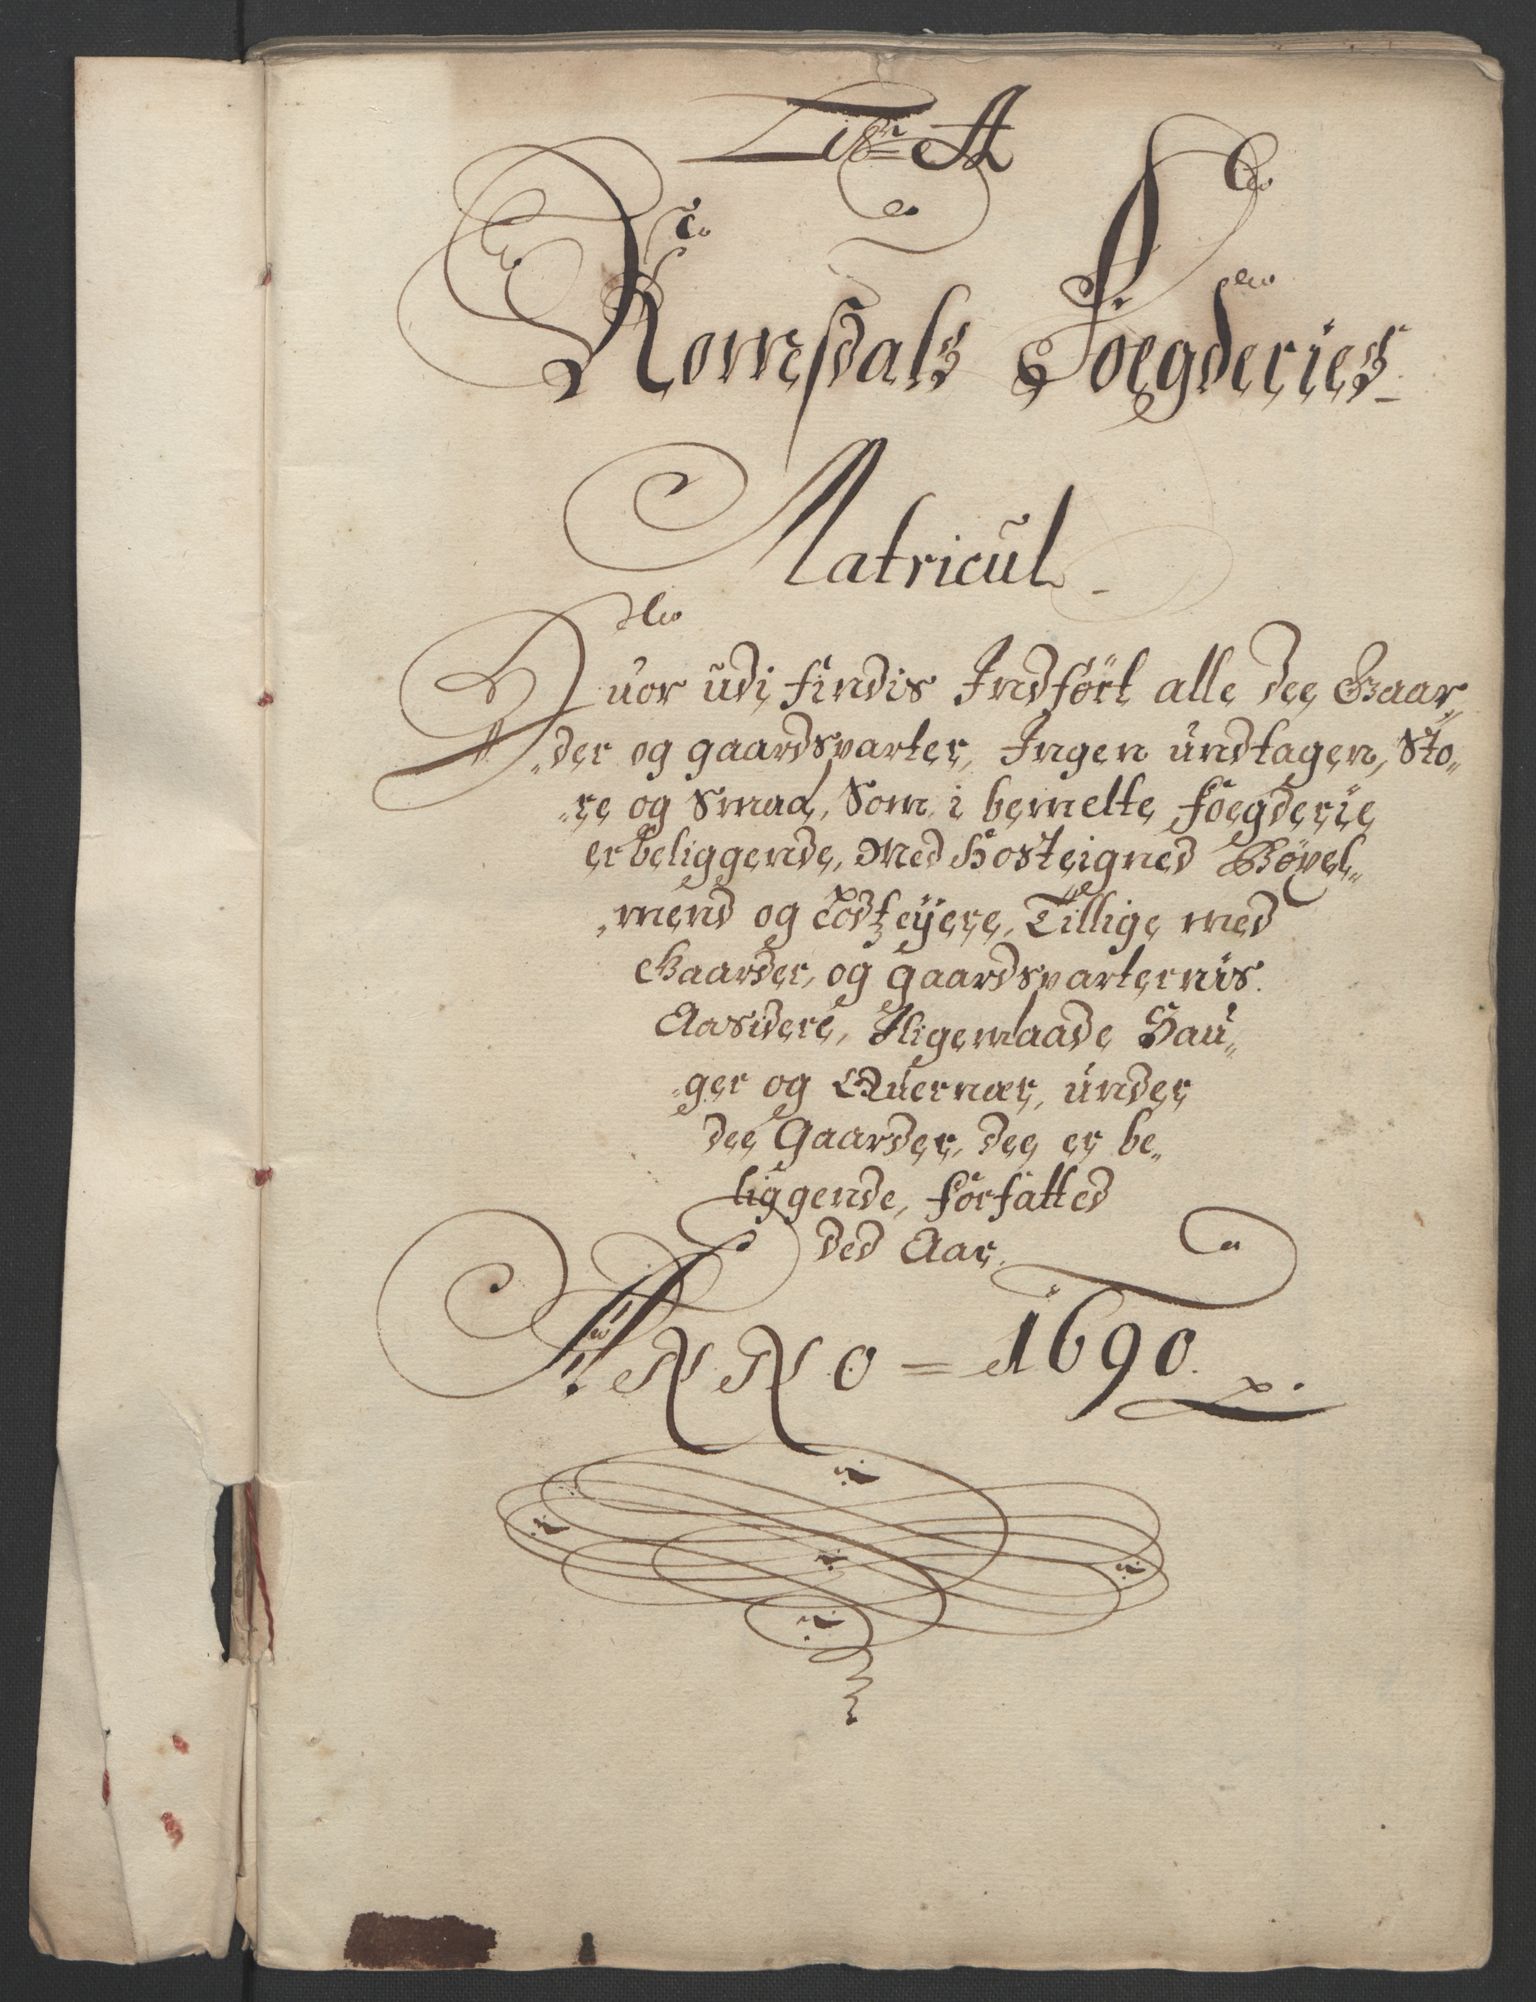 Litr A
Romsdals Foegderies
Matricul
Huor udi findis Indfört alle dee Gaar
der og gaardsparter, Ingen undtagen, Sto
re og Smaa, Som i bemelte foegderie
er beliggende, Med Hosteigned Böxel
mend og Lodtzeÿere, Tillige med
Gaarder, og gaardsparternis
Aasidere, Iligemaade Sau
ger og Quernær, under
dee Gaarder, dee er be
liggende, forfatted
ded Aar.
ANNO = 1690.